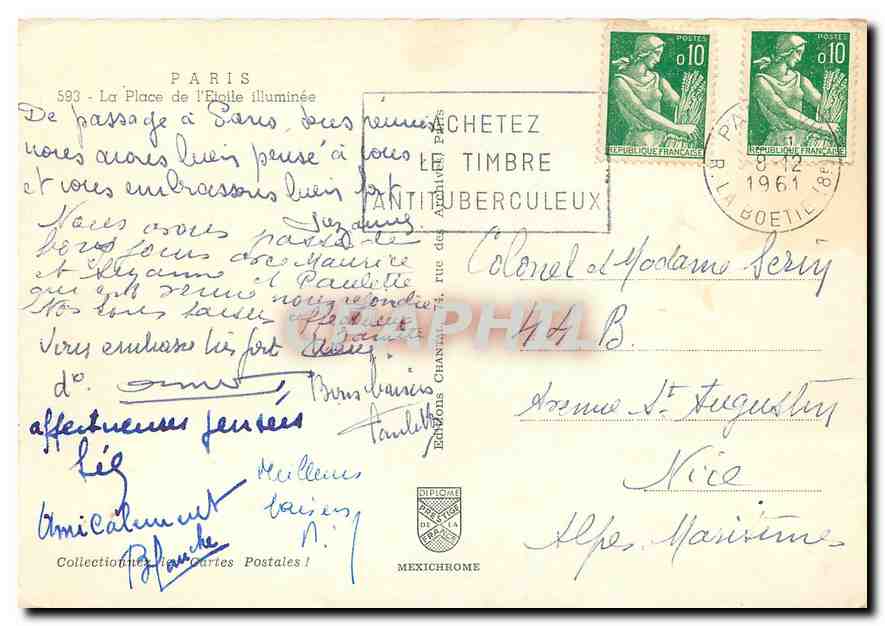 PARIS
593 - La Place de l'Etoile illuminée
De passage à Paris, tous réunis
nous avons bien pensé à vous
et vous embrassons bien fort
Suzanne
Nous avons passé de
bons jours avec Maurice
et Suzanne et Paulette
qui est venue nous rejoindre
Nos bons baisers affectueux
Vous embrasse très fort
d°
Bons baisers
Paulette
affectueuses pensées
Meilleurs
baisers
Amicalement
Blanche
Collectionnez les Cartes Postales !
Editions CHANTAL, 74, rue des Archives, Paris
ACHETEZ
LE TIMBRE
ANTITUBERCULEUX
POSTES
0,10
REPUBLIQUE FRANÇAISE
POSTES
0,10
REPUBLIQUE FRANÇAISE
PARIS
8-12
1961
R. LA BOETIE (8e)
Colonel et Madame Serin
44 B.
Avenue St Augustin
Nice
Alpes Maritimes
DIPLOME
PRESTIGE
DE LA
FRANCE
MEXICHROME
CPAPHIL